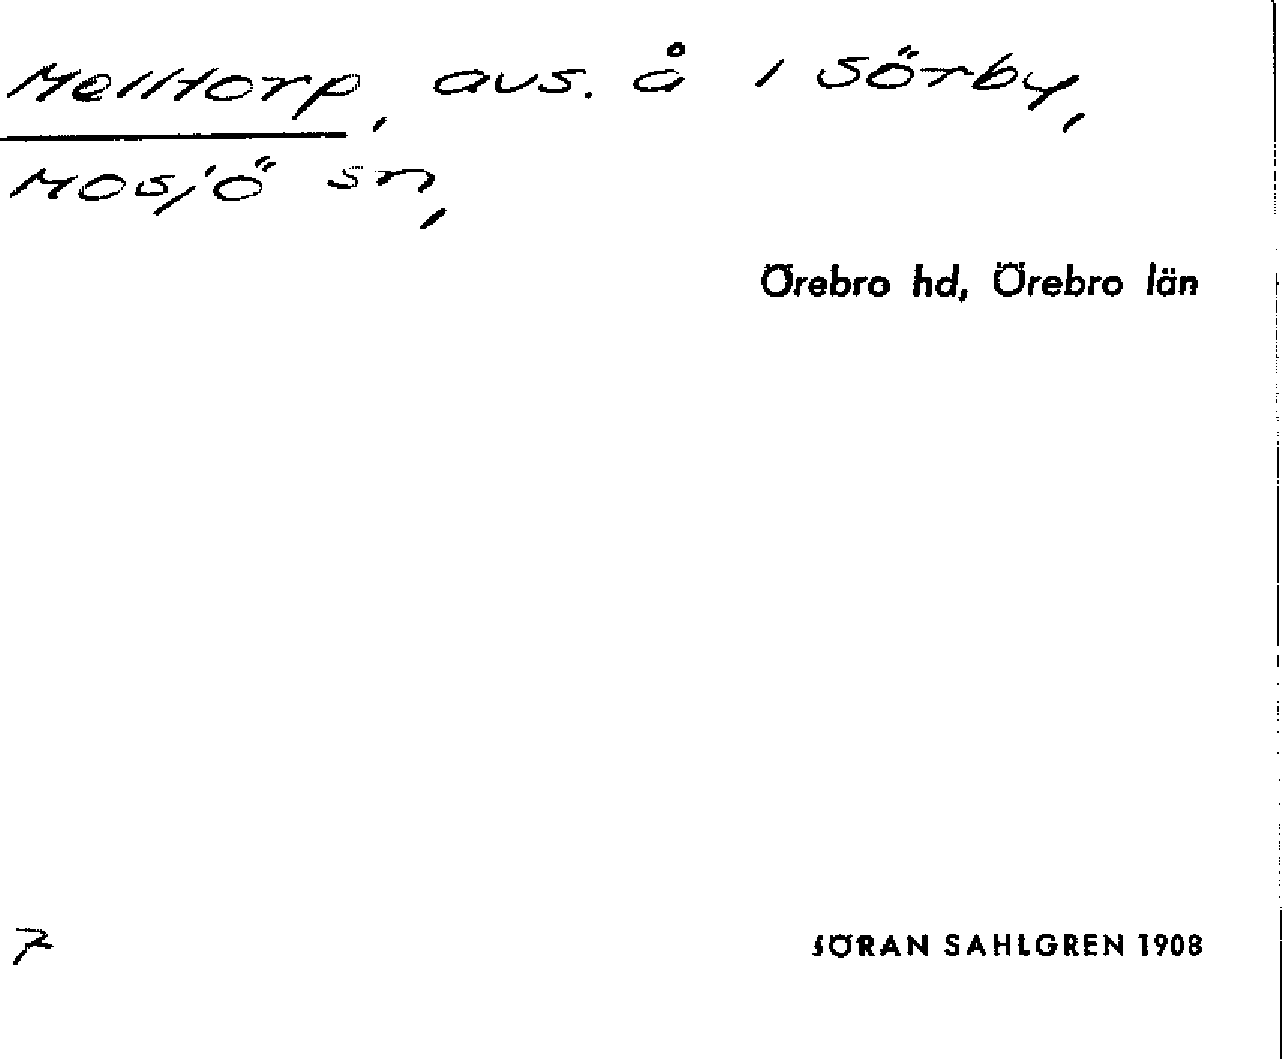 Melltorp, avs. å i Sörby,
Mosjö sn,
Örebro hd, Örebro län
7
JÖRAN SAHLGREN 1908